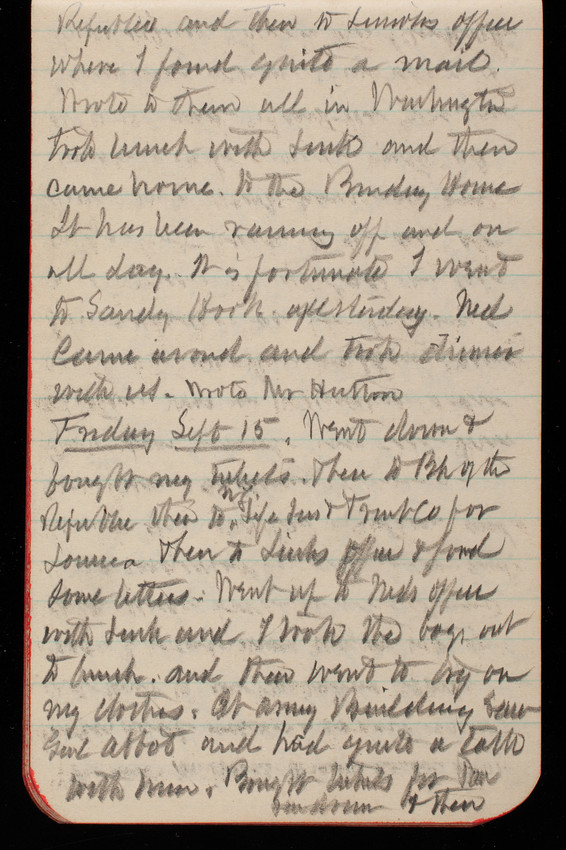 Republic and then to Lincolns office
where I found quite a mail.
Wrote to them all in Washington
took lunch with Link and then
came home. to the Brunswick Home
It has been raining off and on
all day. It is fortunate I went
to Sandy Hook yesterday. Ned
came around and took dinner
with us. Wrote Mr Hutton
Friday Sept 15. Went down &
bought my tickets. then to Bk of the
Republic then to NY Life Ins & Trust Co for
Louisa then to Links office & found
some letters. Went up to Neds office
with Link and I took the boys out
to lunch. and then went to try on
my clothes. At Army Building saw
Genl Abbot and had quite a talk
with him. Bought tickets for
& then